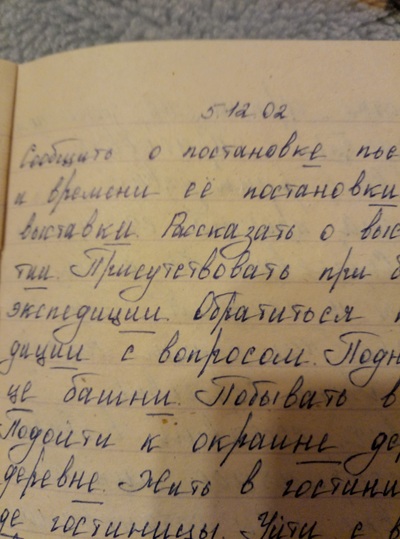 5.12.02
Сообщить о постановке пье
и времени её постановки
выставки. Рассказать о выс
тии. Присутствовать при б
экспедиции. Обратиться к
диции с вопросом. Подн
це башни. Побывать в
Подойти к окраине де
деревне. Жить в гостини
де гостиницы. Уйти с в